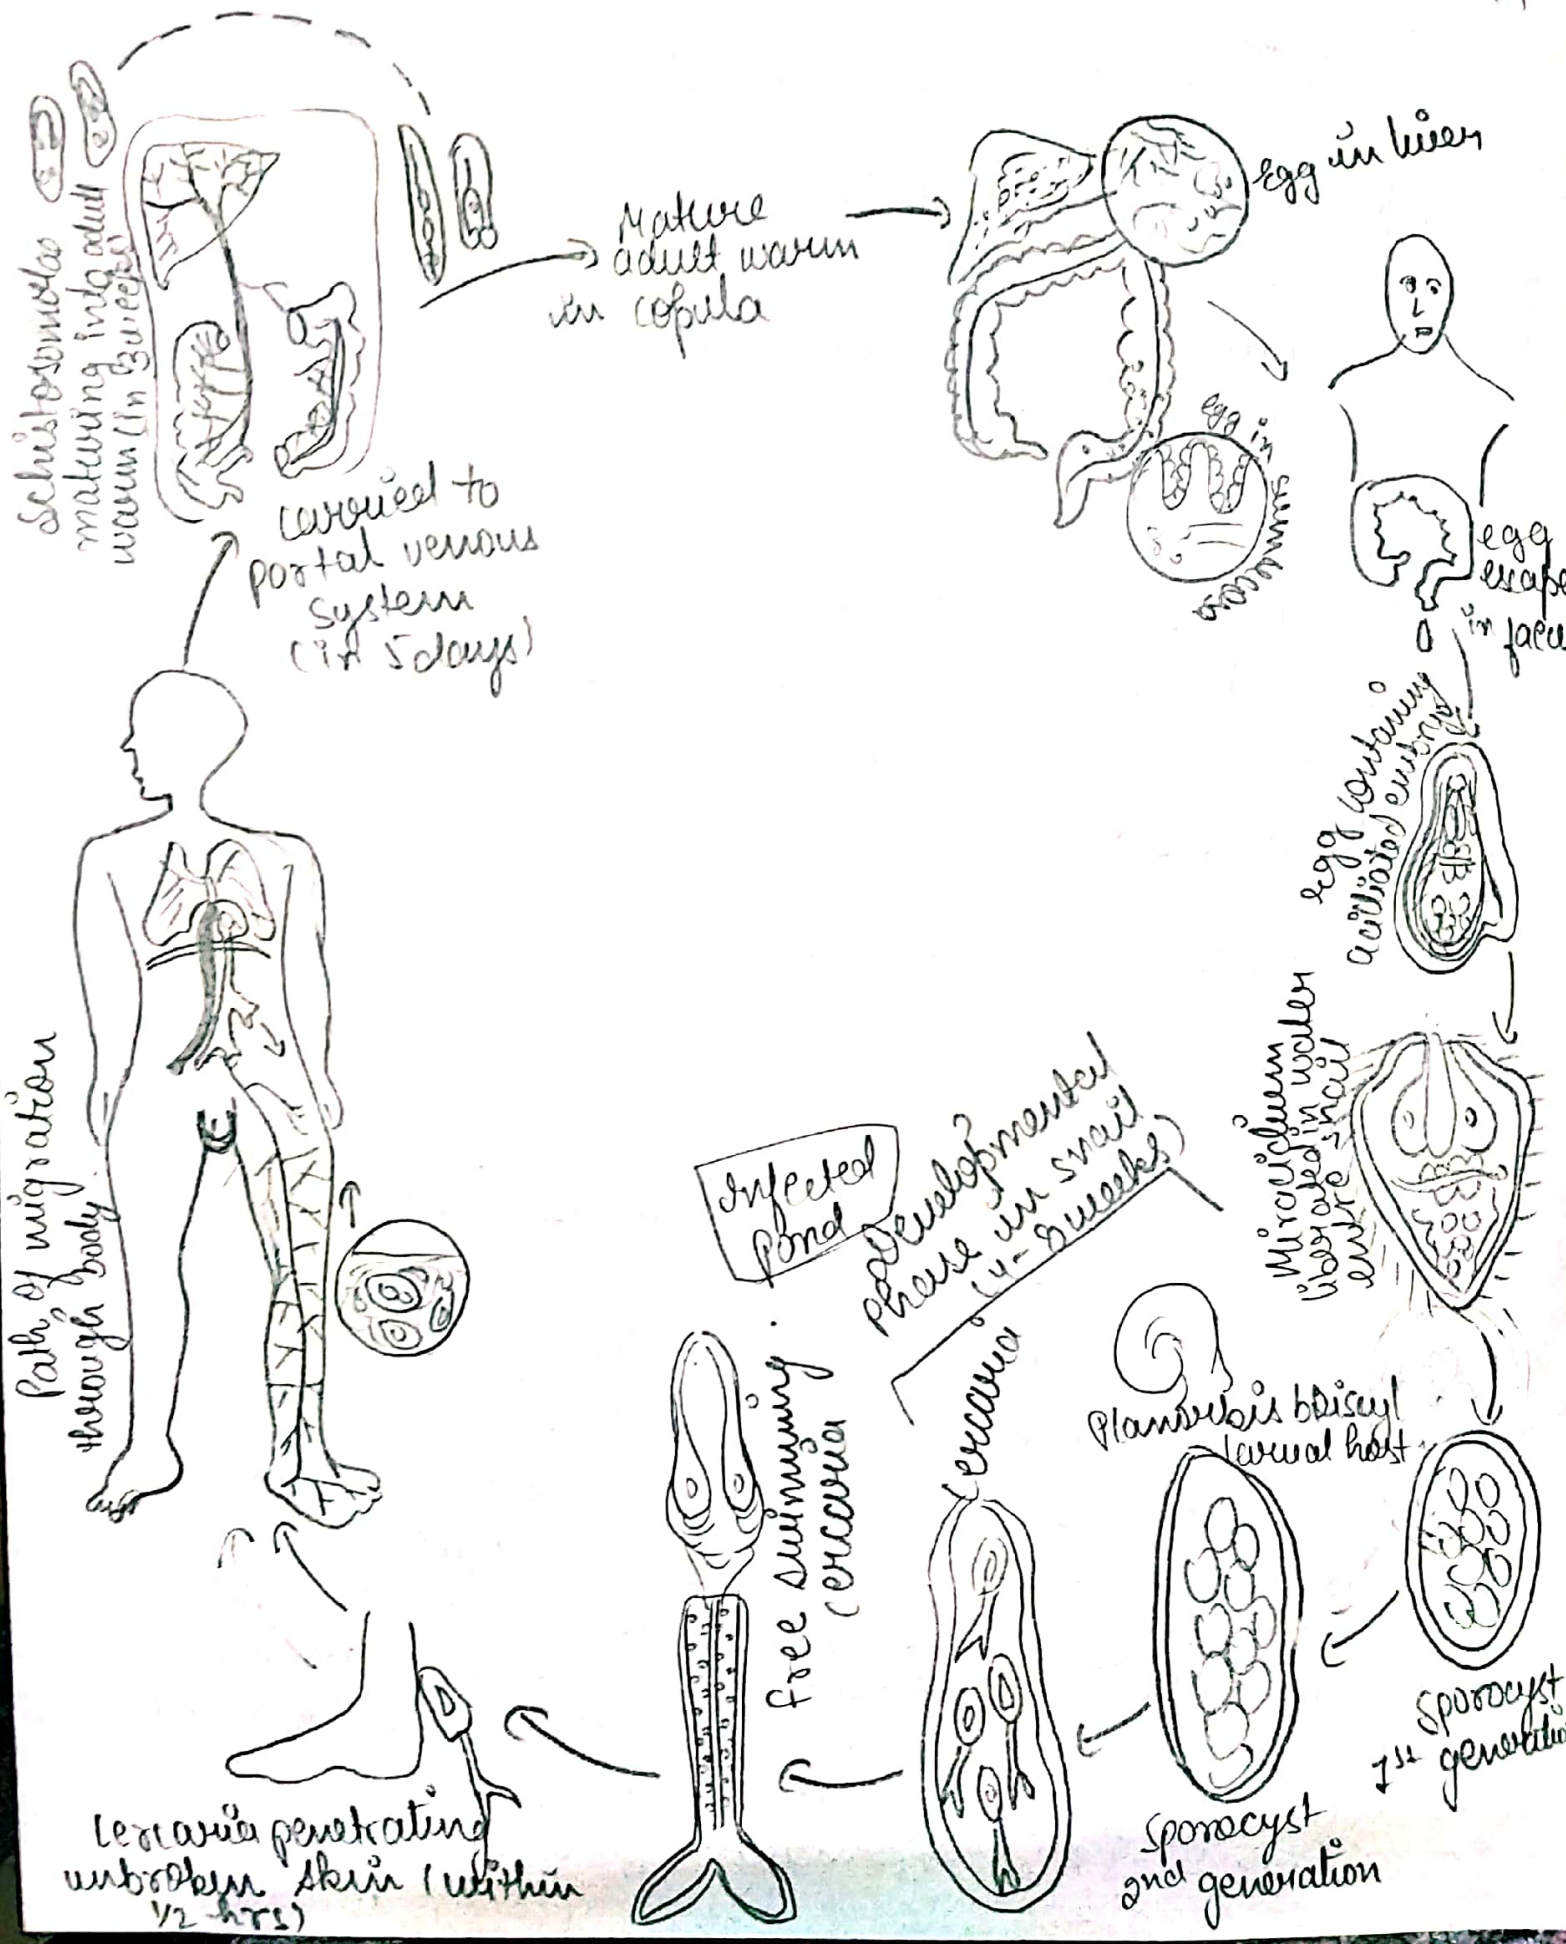 Schistosomolas
maturing into adult
warm (in 3 weeks)
carried to
portal venous
system
(in 5 days)
Mature
adult warm
in copula
egg in liver
egg in
submucosa
egg
escape
in faeces
egg containing
a ciliated embryo
Miracidium
liberated in water
entre snail
Planorbis
larval host
Sporocyst
1st generation
Sporocyst
2nd generation
Cercaria
Developmental
phase in snail
(4-8 weeks)
Infected
Pond
free swimming
cercaria
cercaria penetrating
unbroken skin (within
1/2 hrs)
Path of migration
through body